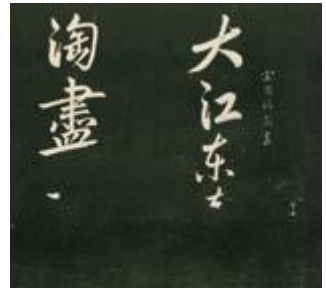 大江东去
淘盡